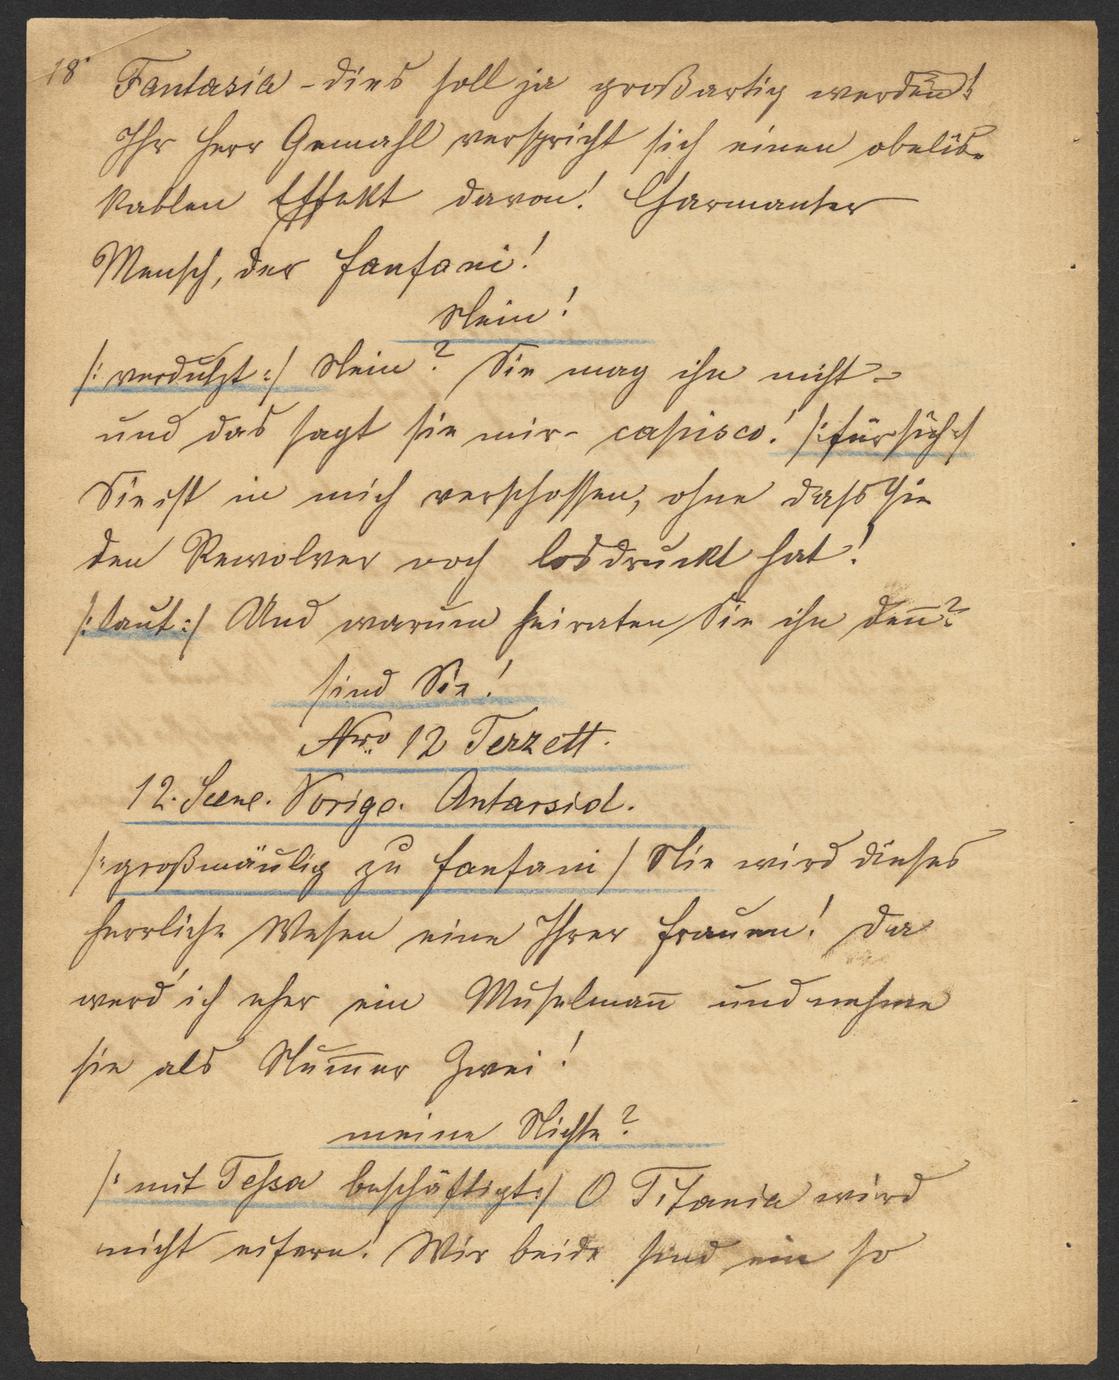 18
Fantasia - dies soll ja großartig werden!
Ihr Herr Gemahl verspricht sich einen obelis-
kablen Effekt davon! Charmanter
Mensch, der Fanfani!
Nein!
/: verdutzt :/ Nein? Sie mag ihn nicht -
und das sagt sie mir - capisco! /: für sich :/
Sie ist in mich verschossen, ohne dass sie
den Rewolver noch losdruckt hat!
/: laut :/ Und warum heiraten Sie ihn den̄?
sind Sie!
Nro 12 Terzett.
12. Scene. Vorige. Antarsid.
/: großmäulig zu Fanfani / Nie wird dieses
herrliche Wesen eine Ihrer Frauen! Da
werd' ich eher ein Muselman̄ und nehme
sie als Num̄er Zwei!
meine Nichte?
/: mit Tessa beschäftigt :/ O Titania wird
nicht eifern! Wir beide sind ein so